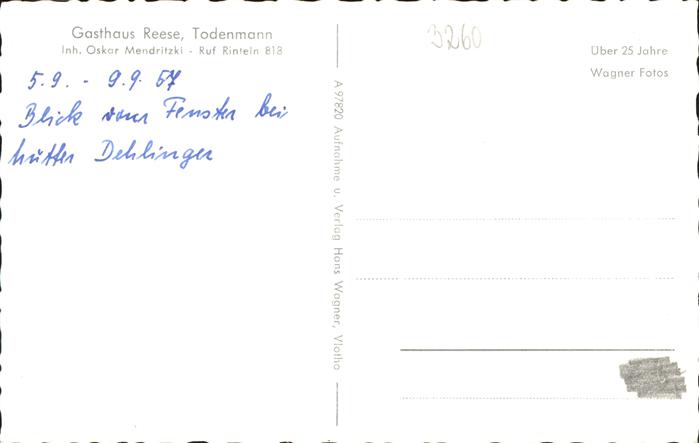 Gasthaus Reese, Todenmann
Inh. Oskar Mendritzki - Ruf Rinteln 813
5.9. - 9.9. 57
Blick vom Fenster bei
Mutter Dehlinger
A 97820 Aufnahme u. Verlag Hans Wagner, Vlotho
3260
Über 25 Jahre
Wagner Fotos